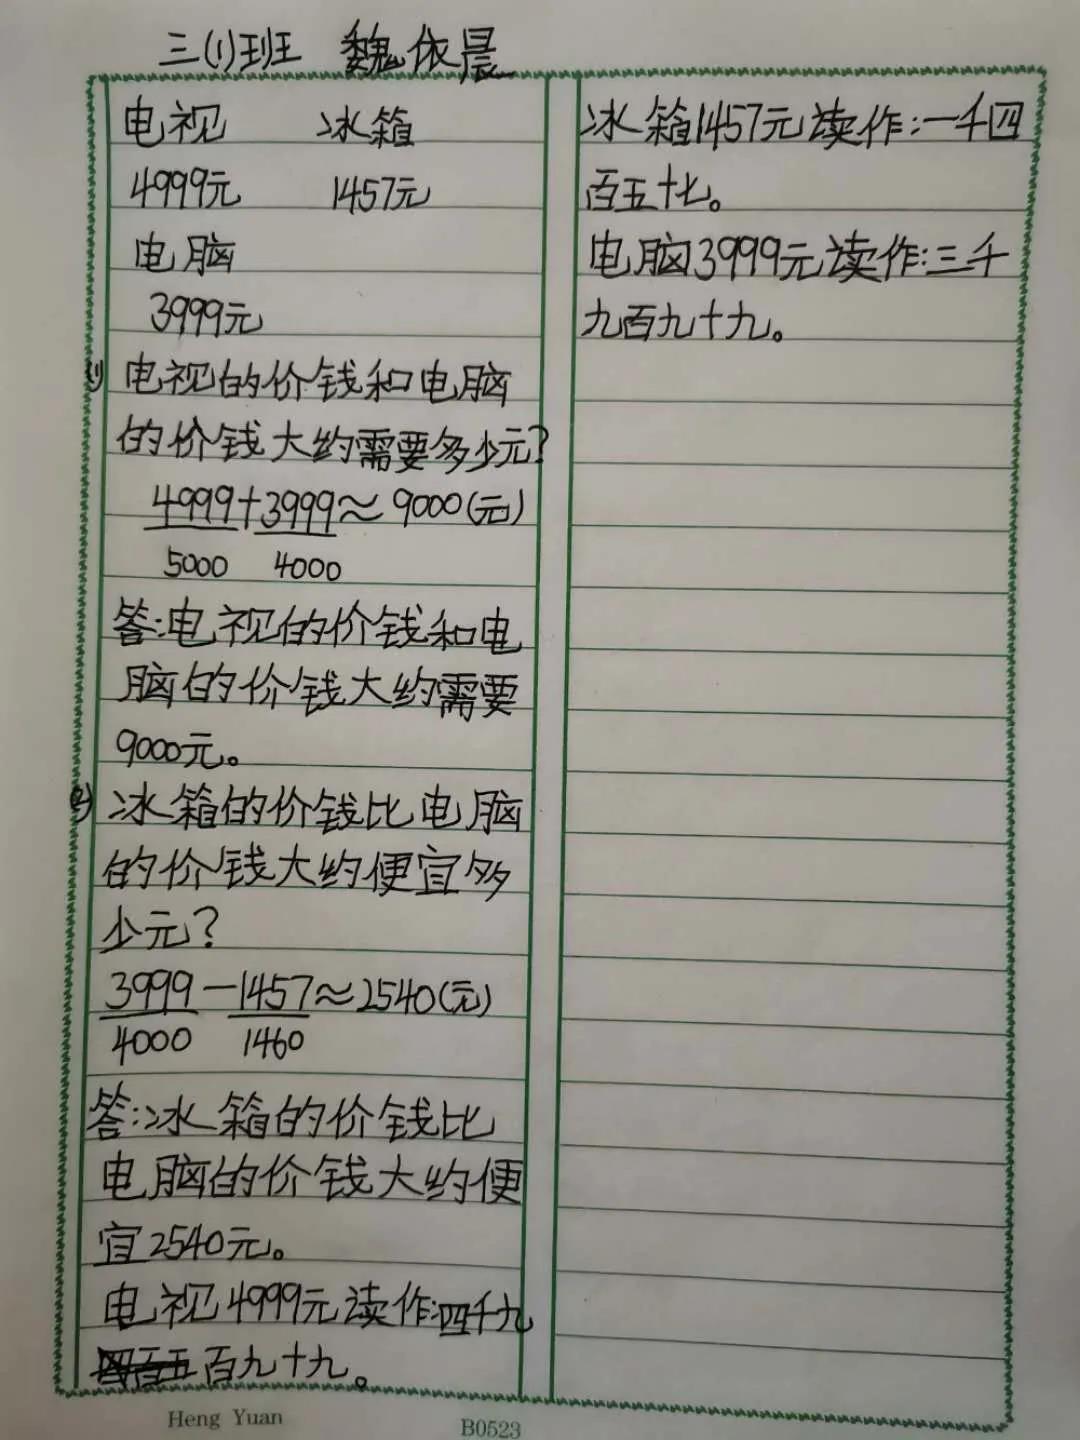 三(1)班 魏依晨
电视 冰箱
4999元 1457元
电脑
3999元
(1) 电视的价钱和电脑
的价钱大约需要多少元?
4999+3999≈9000(元)
5000 4000
答:电视的价钱和电
脑的价钱大约需要
9000元。
(2) 冰箱的价钱比电脑
的价钱大约便宜多
少元?
3999-1457≈2540(元)
4000 1460
答:冰箱的价钱比
电脑的价钱大约便
宜2540元。
电视4999元读作:四千九
百九十九。
冰箱1457元读作:一千四
百五十七。
电脑3999元读作:三千
九百九十九。
Heng Yuan B0523